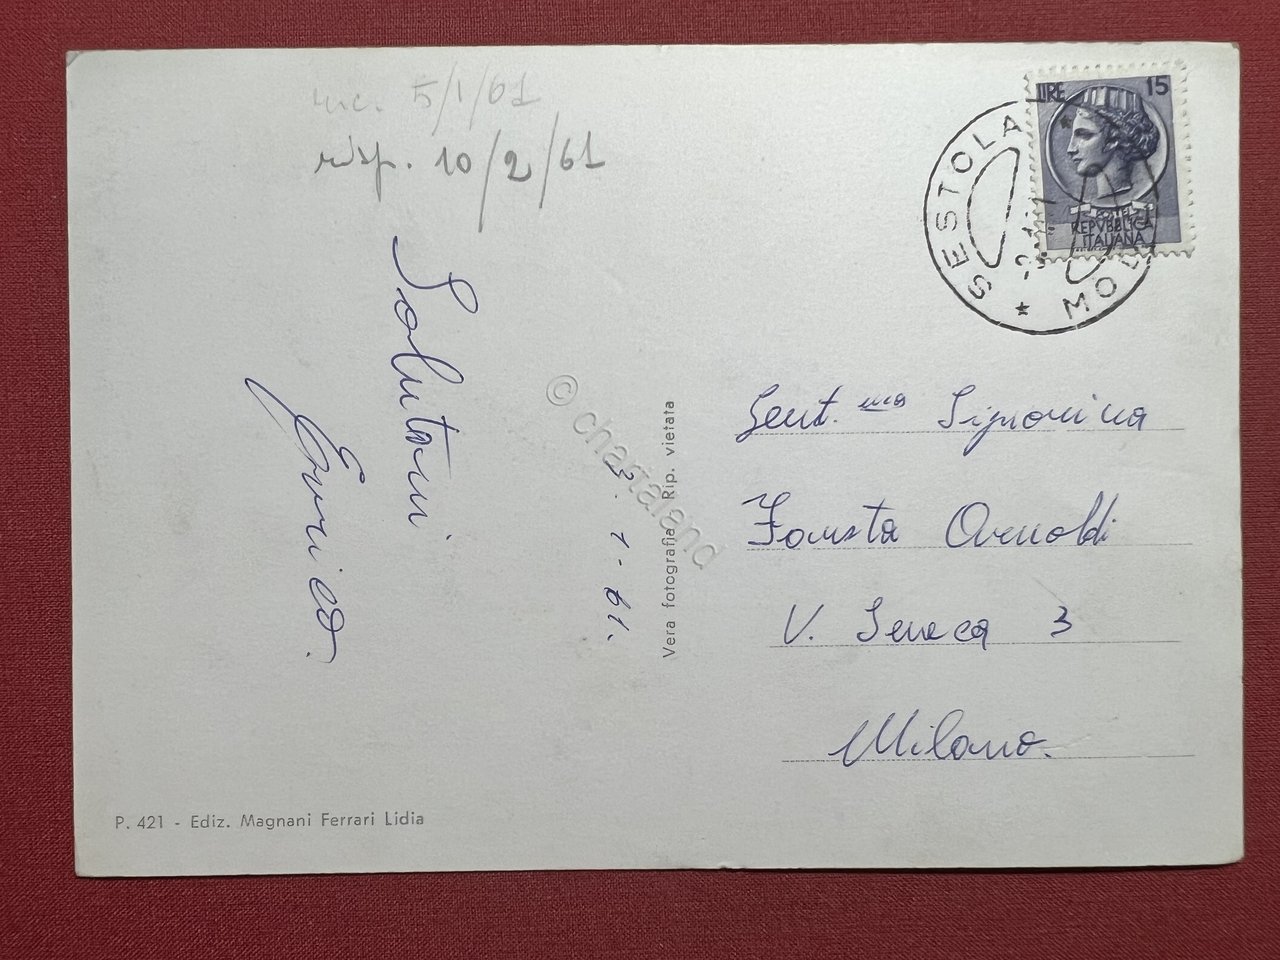 ric. 5/1/61
risp. 10/2/61
Saluti
Enrico.
2-1-61.
P. 421 - Ediz. Magnani Ferrari Lidia
Vera fotografia Rip. vietata
© chartaland
LIRE 15
POSTE
REPVBBLICA
ITALIANA
SESTOLA * MO
Gent.ma Signorina
Fausta Arnoldi
V. Seneca 3
Milano.